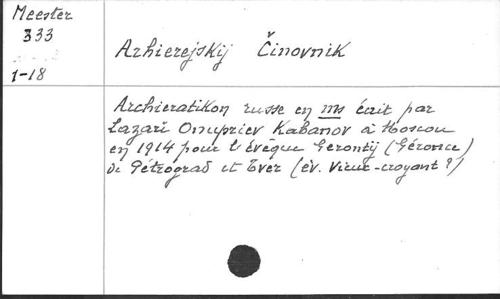 Meester
333
1-18
Arhierejskij Činovnik
Archieratikon russe en ms écrit par
Lazari Onupriev Kabanov à Moscou
en 1914 pour l'évêque Gerontij (Géronce)
de Pétrograd et Tver (év. Vieux-croyant ?)